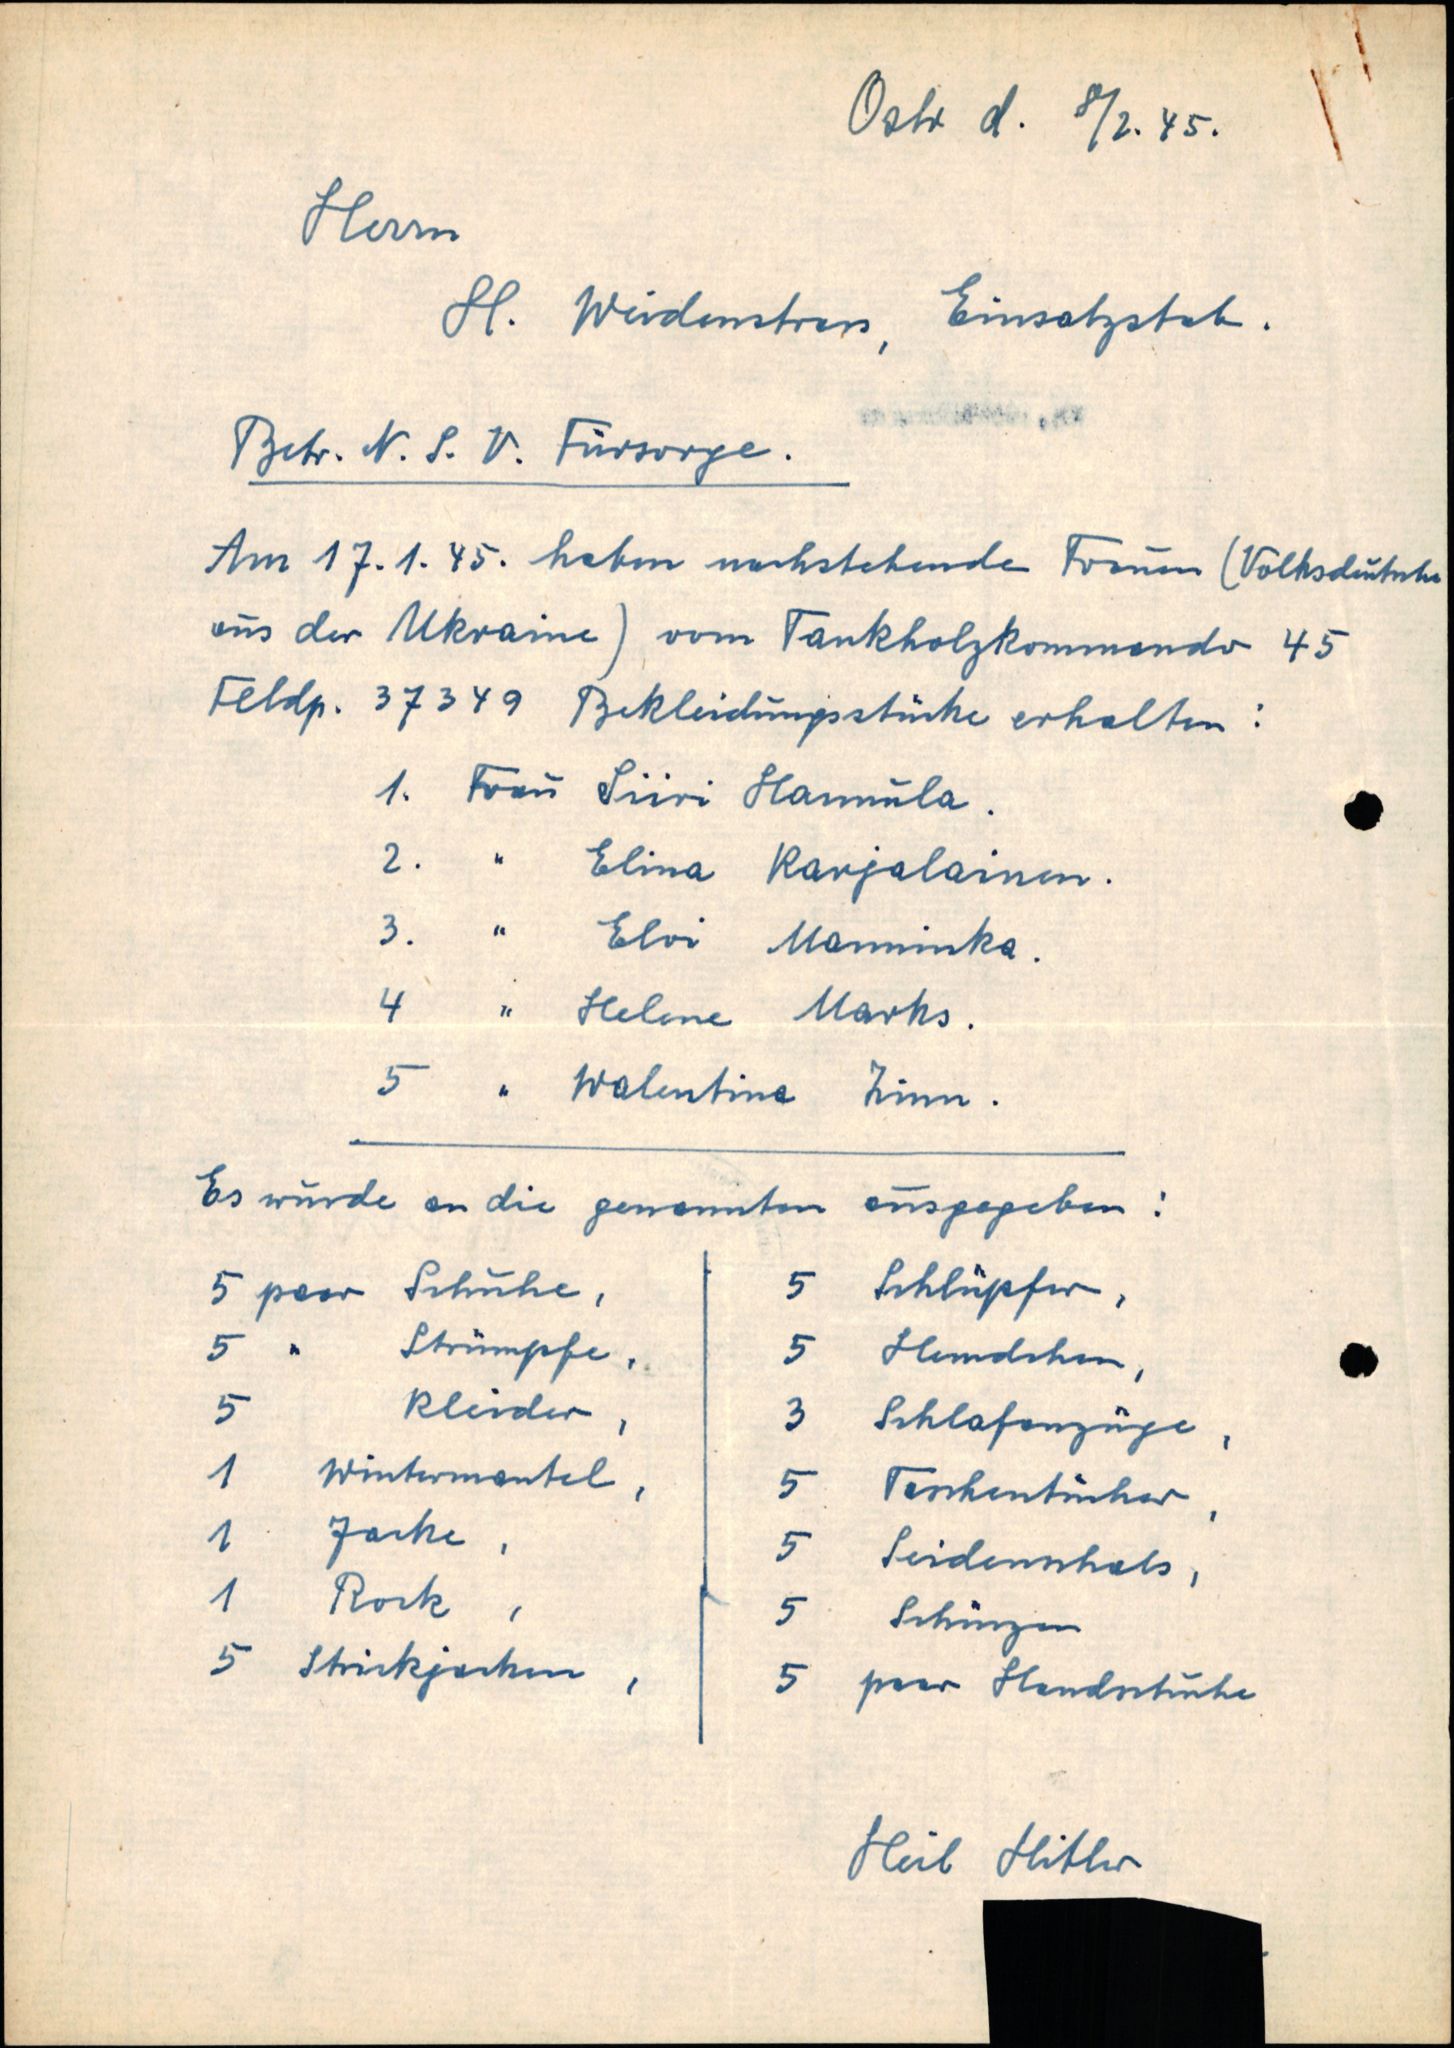 Oslo d. 8/2. 45.
Herrn
H. Weidenstrass, Einsatzstab.
Betr. N. S. V. Fürsorge.
Am 17. 1. 45. haben nachstehende Frauen (Volksdeutsche
aus der Ukraine) vom Tankholzkommando 45
Feldp. 37349 Bekleidungsstücke erhalten :
1. Frau Siiri Hannula.
2. " Elina Karjalainen.
3. " Elvi Manninka.
4 " Helene Marks.
5 " Walentina Zinn.
Es wurde an die genannten ausgegeben :
5 paar Schuhe,
5 " Strümpfe,
5 Kleider,
1 Wintermantel,
1 Jacke,
1 Rock,
5 Strickjacken,
5 Schlüpfer,
5 Hemdchen,
3 Schlafanzüge,
5 Taschentücher,
5 Seidenschals,
5 Schürzen
5 paar Handschuhe
Heil Hitler